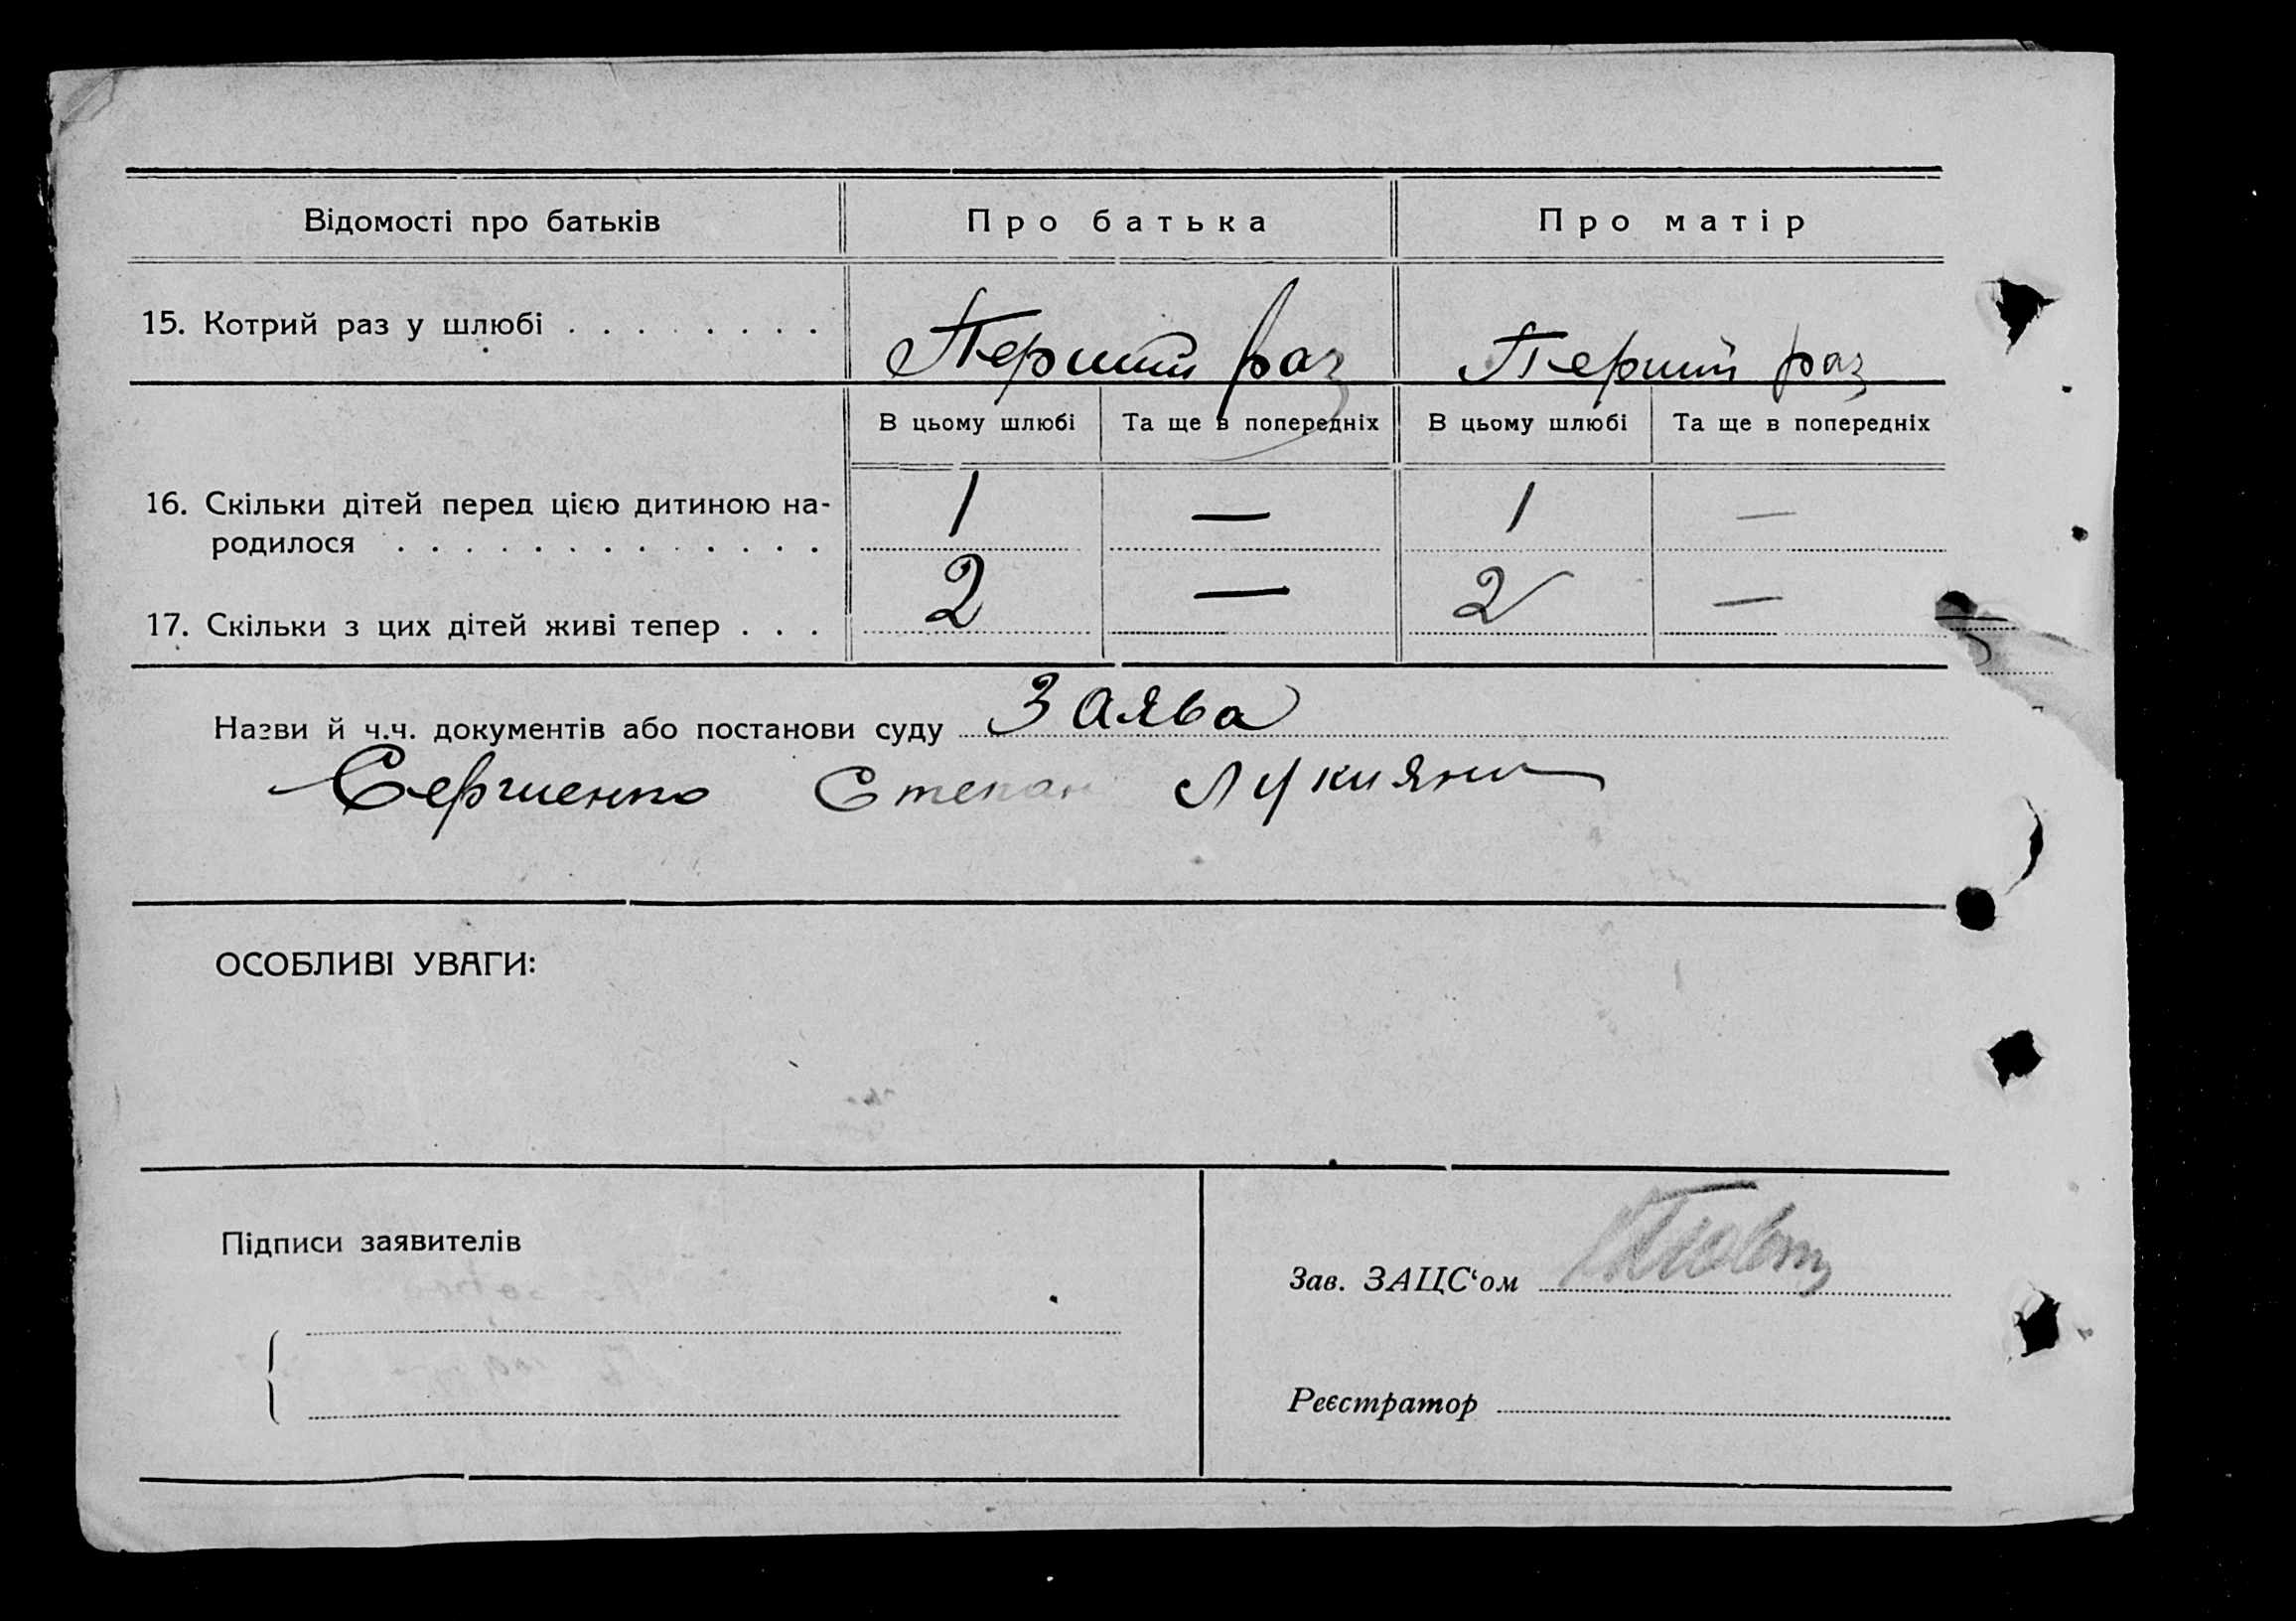 Відомості про батьків
Про батька
Про матір
15. Котрий раз у шлюбі . . . . . . . .
Перший раз
Перший раз
В цьому шлюбі
Та ще в попередніх
В цьому шлюбі
Та ще в попередніх
16. Скільки дітей перед цією дитиною на-
родилося . . . . . . . . . . . . .
1 — 1 —
17. Скільки з цих дітей живі тепер . . .
2 — 2 —
Назви й ч.ч. документів або постанови суду Заява
Сергиенко Степан
ОСОБЛИВІ УВАГИ:
Підписи заявителів
Зав. ЗАЦС‘ом
Реєстратор